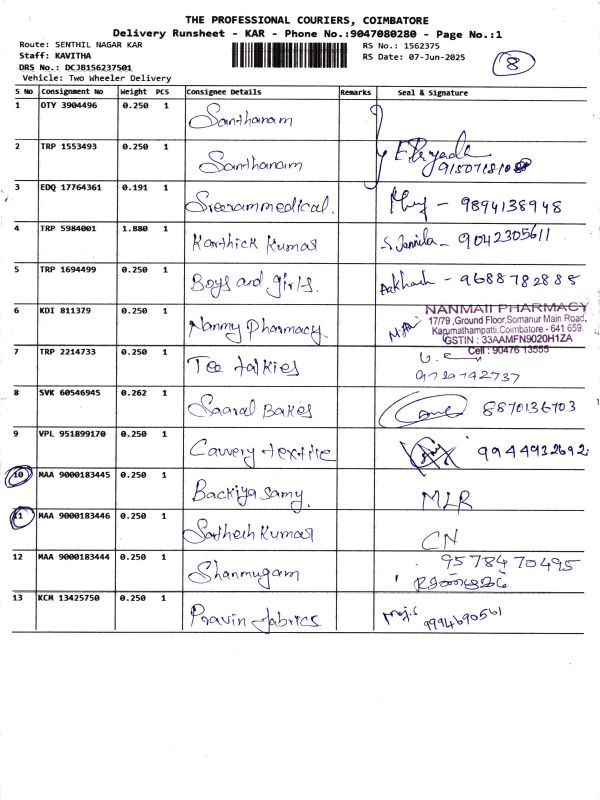 THE PROFESSIONAL COURIERS, COIMBATORE
Delivery Runsheet - KAR - Phone No.:9047080280 - Page No.:1
Route: SENTHIL NAGAR KAR RS No.: 1562375
Staff: KAVITHA RS Date: 07-Jun-2025 8
DRS No.: DCJB156237501
Vehicle: Two Wheeler Delivery
S No Consignment No Weight PCS Consignee Details Remarks Seal & Signature
1 OTY 3904496 0.250 1 Santhanam
2 TRP 1553493 0.250 1 Santhanam
3 EDQ 17764361 0.191 1 Sreerammedical. - 9894138948
4 TRP 5984001 1.880 1 Karthick Kumar S. Jamila - 9042305611
5 TRP 1694499 0.250 1 Boys and girls. Aakhash - 9688782885
6 KDI 811379 0.250 1 Nanmy Pharmacy
NANMAII PHARMACY
17/79 ,Ground Floor,Somanur Main Road,
Karumathampatti,Coimbatore - 641 659.
GSTIN : 33AAMFN9020H1ZA
Cell : 90476 13555
7 TRP 2214733 0.250 1 Tee talkies
8 SVK 60546945 0.262 1 Saaral Bakes 8870136703
9 VPL 951899170 0.250 1 Cauvery textile 9944932692
10 MAA 9000183445 0.250 1 Backiya samy. MLR
11 MAA 9000183446 0.250 1 Sathesh Kumar CN
12 MAA 9000183444 0.250 1 Shanmugam 9578470495
13 KCM 13425750 0.250 1 Pravin fabrics 9994690561